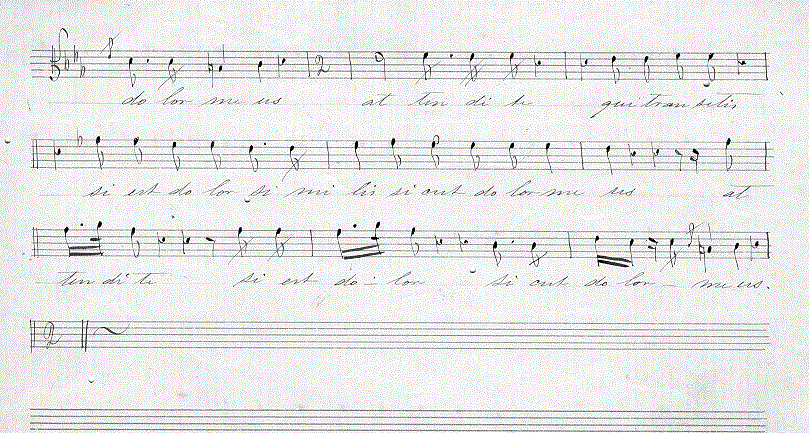 2
do lor me us at ten di te qui tran sitis
si est do lor si mi lis si cut do lor me us at
ten di te si est do - lor si cut do lor - me us.
2